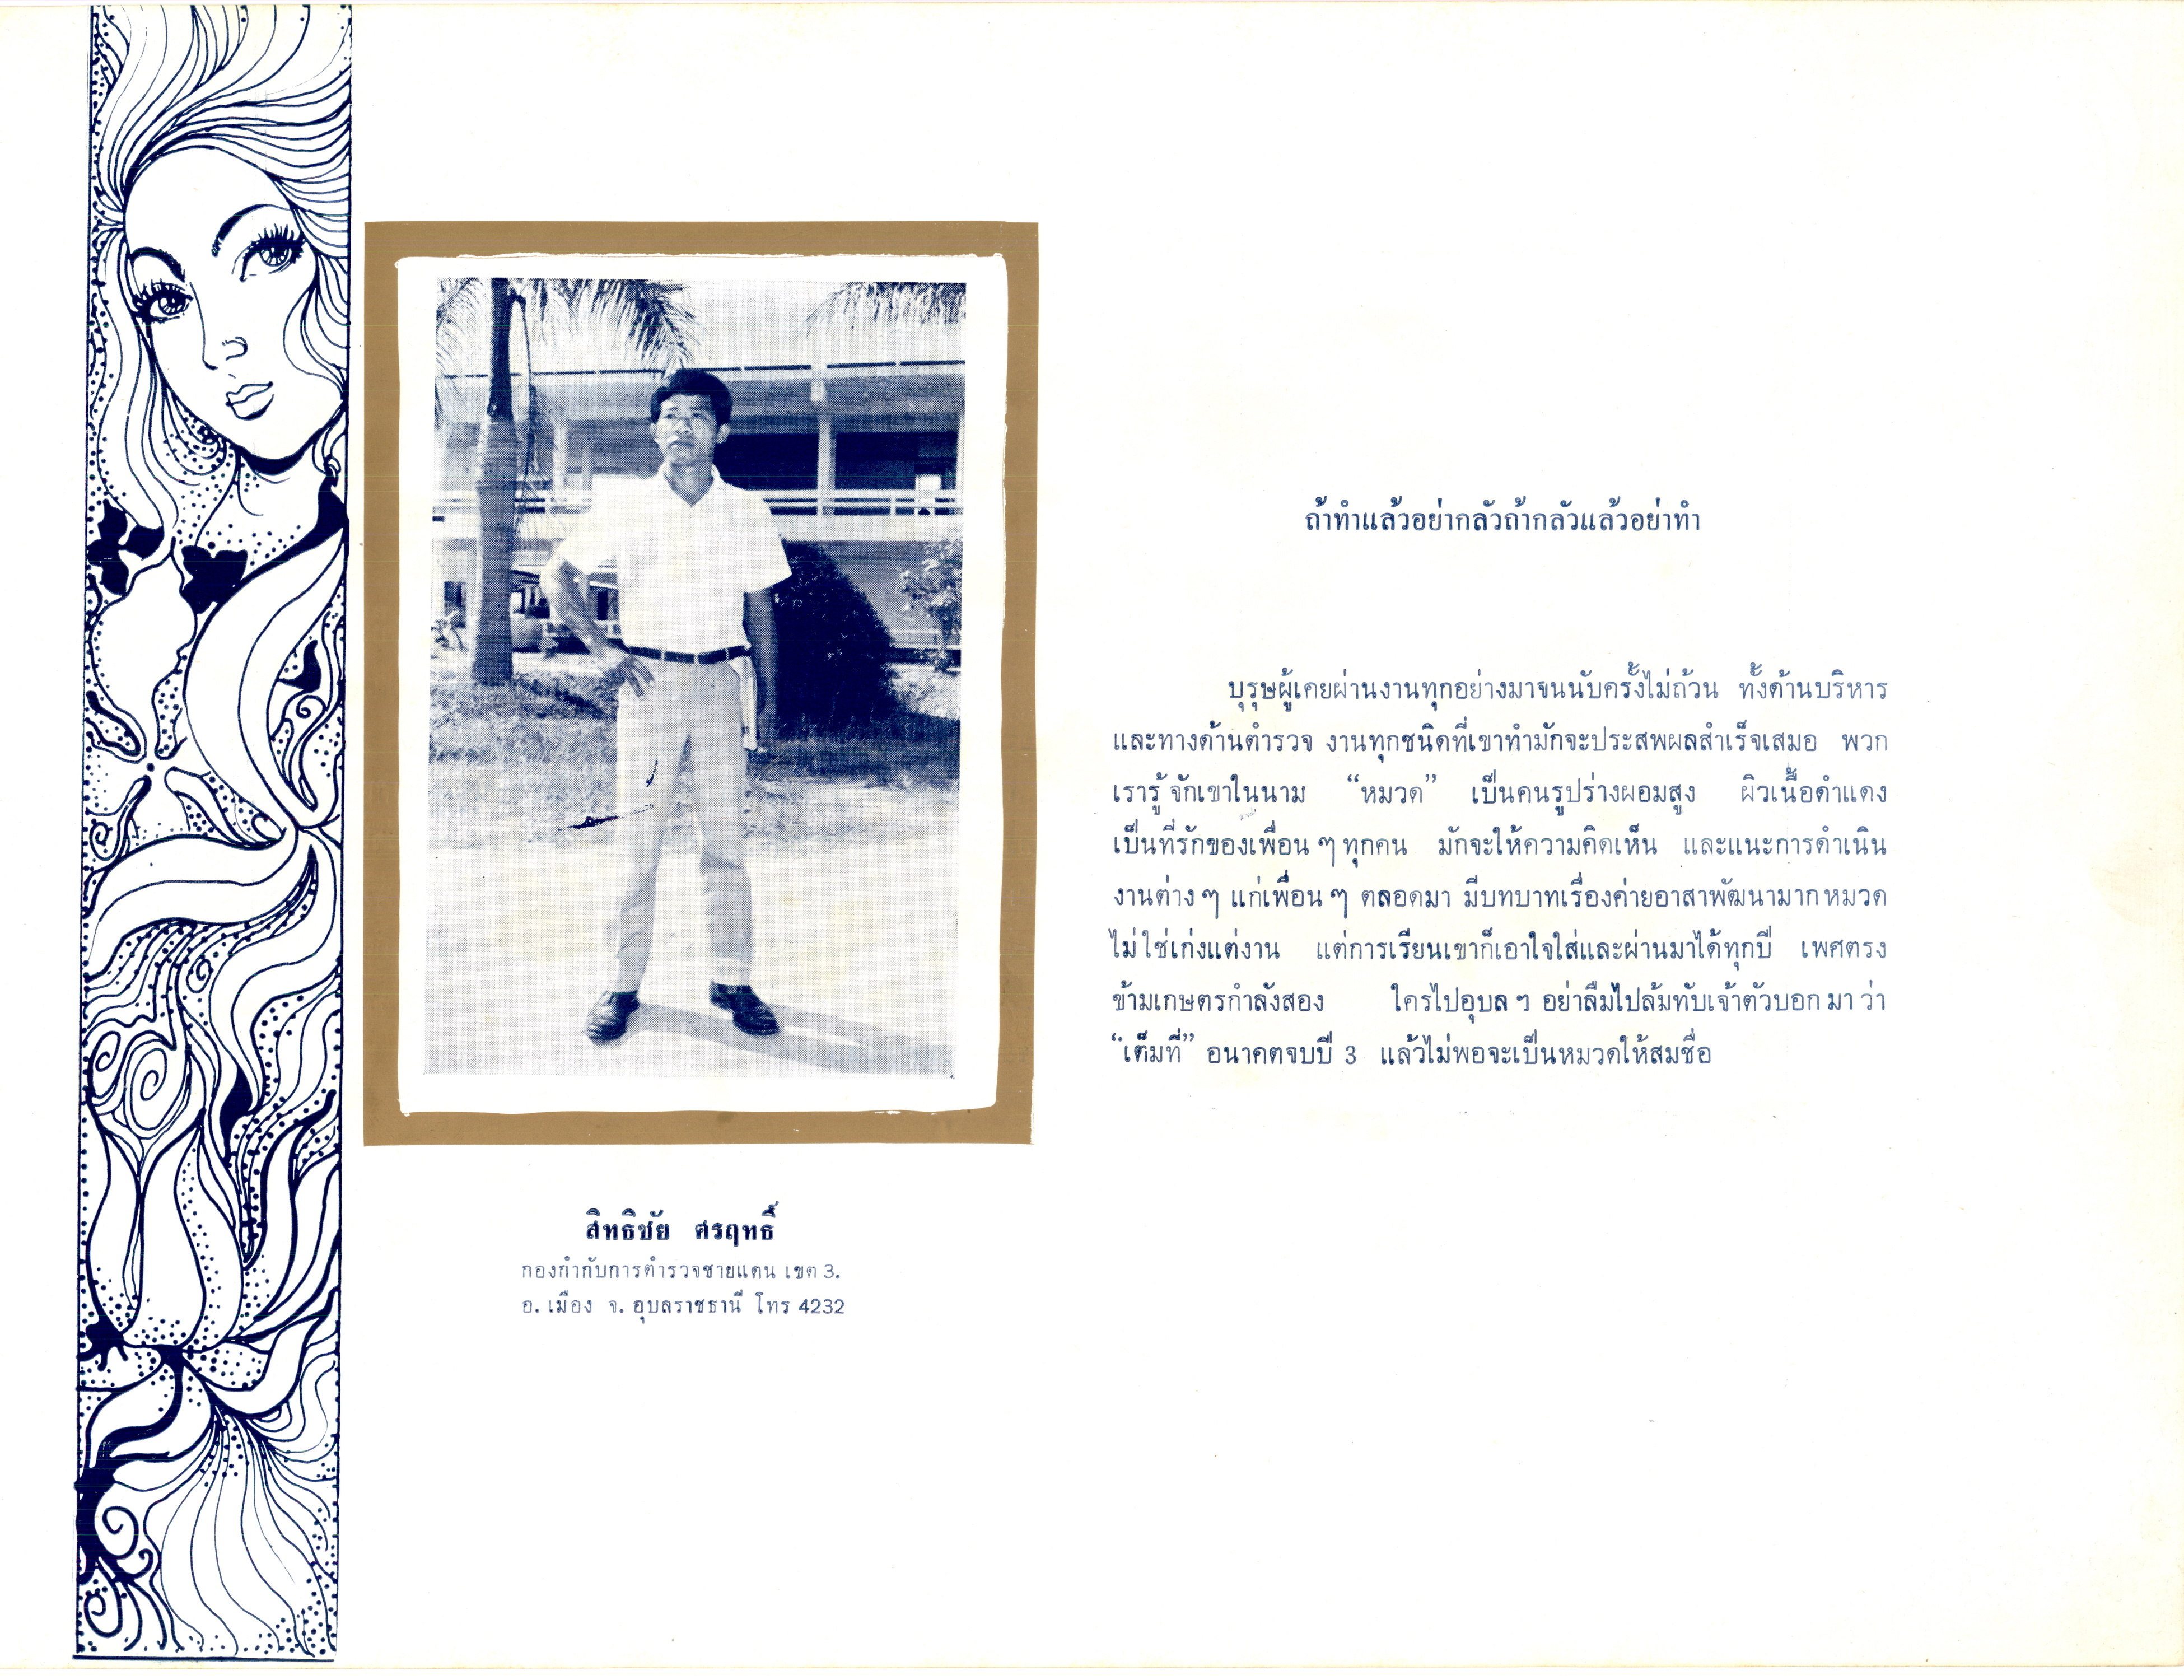 ถ้าทำแล้วอย่ากลัวถ้ากลัวแล้วอย่าทำ
บุรุษผู้เคยผ่านงานทุกอย่างมาจนนับครั้งไม่ถ้วน ทั้งด้านบริหาร
และทางด้านตำรวจ งานทุกชนิดที่เขาทำมักจะประสพผลสำเร็จเสมอ พวก
เรารู้จักเขาในนาม “หมวด” เป็นคนรูปร่างผอมสูง ผิวเนื้อดำแดง
เป็นที่รักของเพื่อน ๆ ทุกคน มักจะให้ความคิดเห็น และแนะการดำเนิน
งานต่าง ๆ แก่เพื่อน ๆ ตลอดมา มีบทบาทเรื่องค่ายอาสาพัฒนามาก หมวด
ไม่ใช่เก่งแต่งาน แต่การเรียนเขาก็เอาใจใส่และผ่านมาได้ทุกปี เพศตรง
ข้ามเกษตรกำลังสอง ใครไปอุบล ฯ อย่าลืมไปล้มทับเจ้าตัวบอกมาว่า
“เต็มที่” อนาคตจบปี 3 แล้วไม่พอจะเป็นหมวดให้สมชื่อ
สิทธิชัย ศรฤทธิ์
กองกำกับการตำรวจชายแดน เขต 3.
อ. เมือง จ. อุบลราชธานี โทร 4232